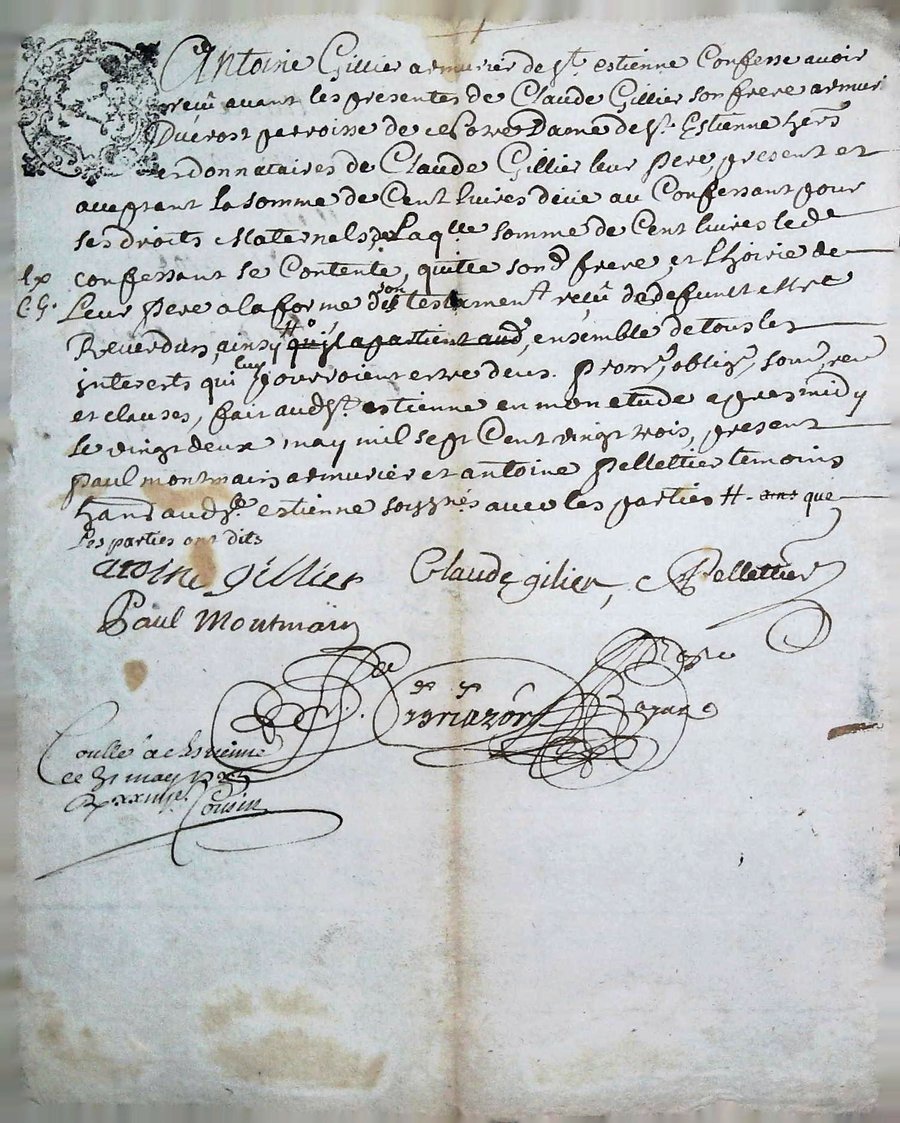 Antoine Gillier armurier de St. estienne Confesse avoir
reçû avant les presentes de Claude Gillier son frere armur.
parroisse de Notre Dame de St. Estienne hers
et donnataires de Claude Gillier leur pere, present et
acceptant la somme de Cent livres deüe au Confessant pour
ses droits Maternels, de Laqlle somme de Cent livres led
confessant se Contente, quitte sond frere, et Lhoirie de
Leur pere a la forme de son testament reçû de defunt Mre
Reverdun, ainsy # qu'il apartient aud, ensemble de tous les
interests qui luy pourroient estre deus. prom, oblig, soum, ren
et clauses, fait aud St. estienne en mon etude apres midy
le vingt deux may mil sept Cent vingt trois, present
paul montmain armurier et antoine pellettier temoins
aud St. estienne soussignés avec les parties #- que
Les parties ont dits
antoine gillier Claude gilier, Pellettier
Paul Montmain
Coullé a St estienne
ce 31 may
Cousin